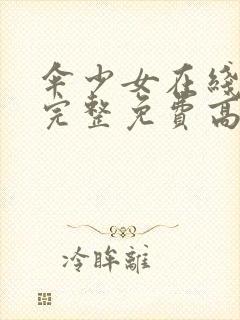 伞少女在綫
完整免費高
冷眸離